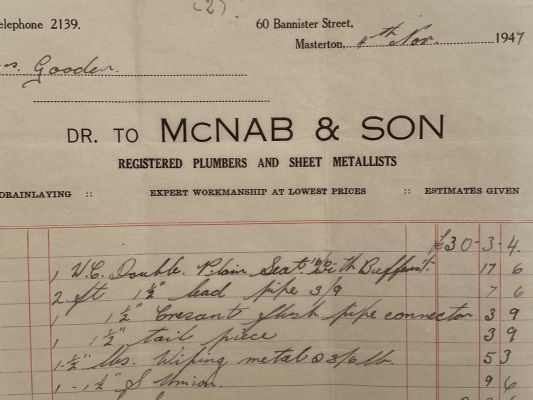 elephone 2139.
(2)
60 Bannister Street,
Masterton, 4th Nov. 1947
s. Gooden.
DR. TO McNAB & SON
REGISTERED PLUMBERS AND SHEET METALLISTS
DRAINLAYING :: EXPERT WORKMANSHIP AT LOWEST PRICES :: ESTIMATES GIVEN
£30-3-4.
1 W.C. Double Plain Seat with Buffers 17 6
2 ft 1½" lead pipe 3/9 7 6
1 1½" Cresant flush pipe connector 3 9
1 1½" tail piece 3 9
1½" lbs. Wiping metal @ 3/6 lb. 5 3
1 - 1½" S Union. 9 6